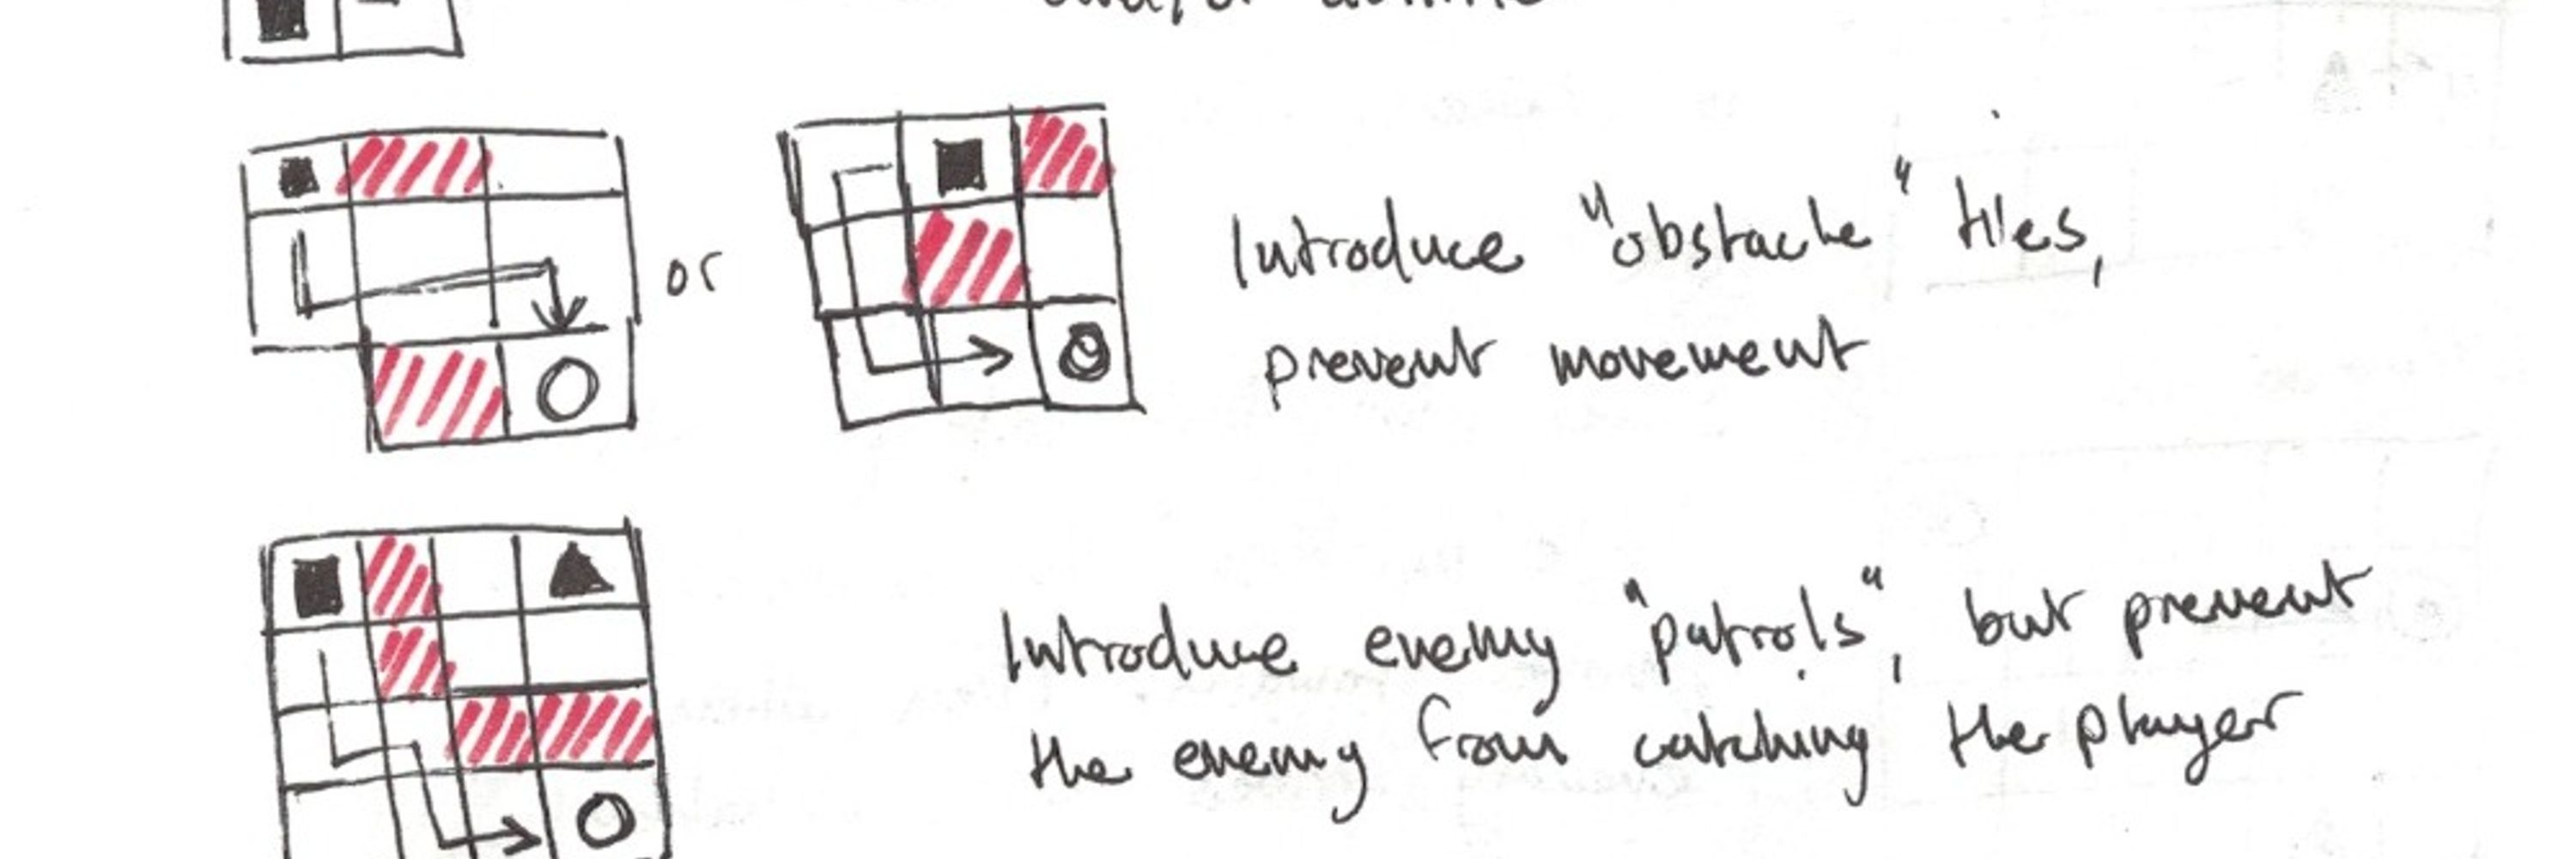 or
Introduce "obstacle" tiles,
prevent movement
Introduce enemy "patrols", but prevent
the enemy from catching the player